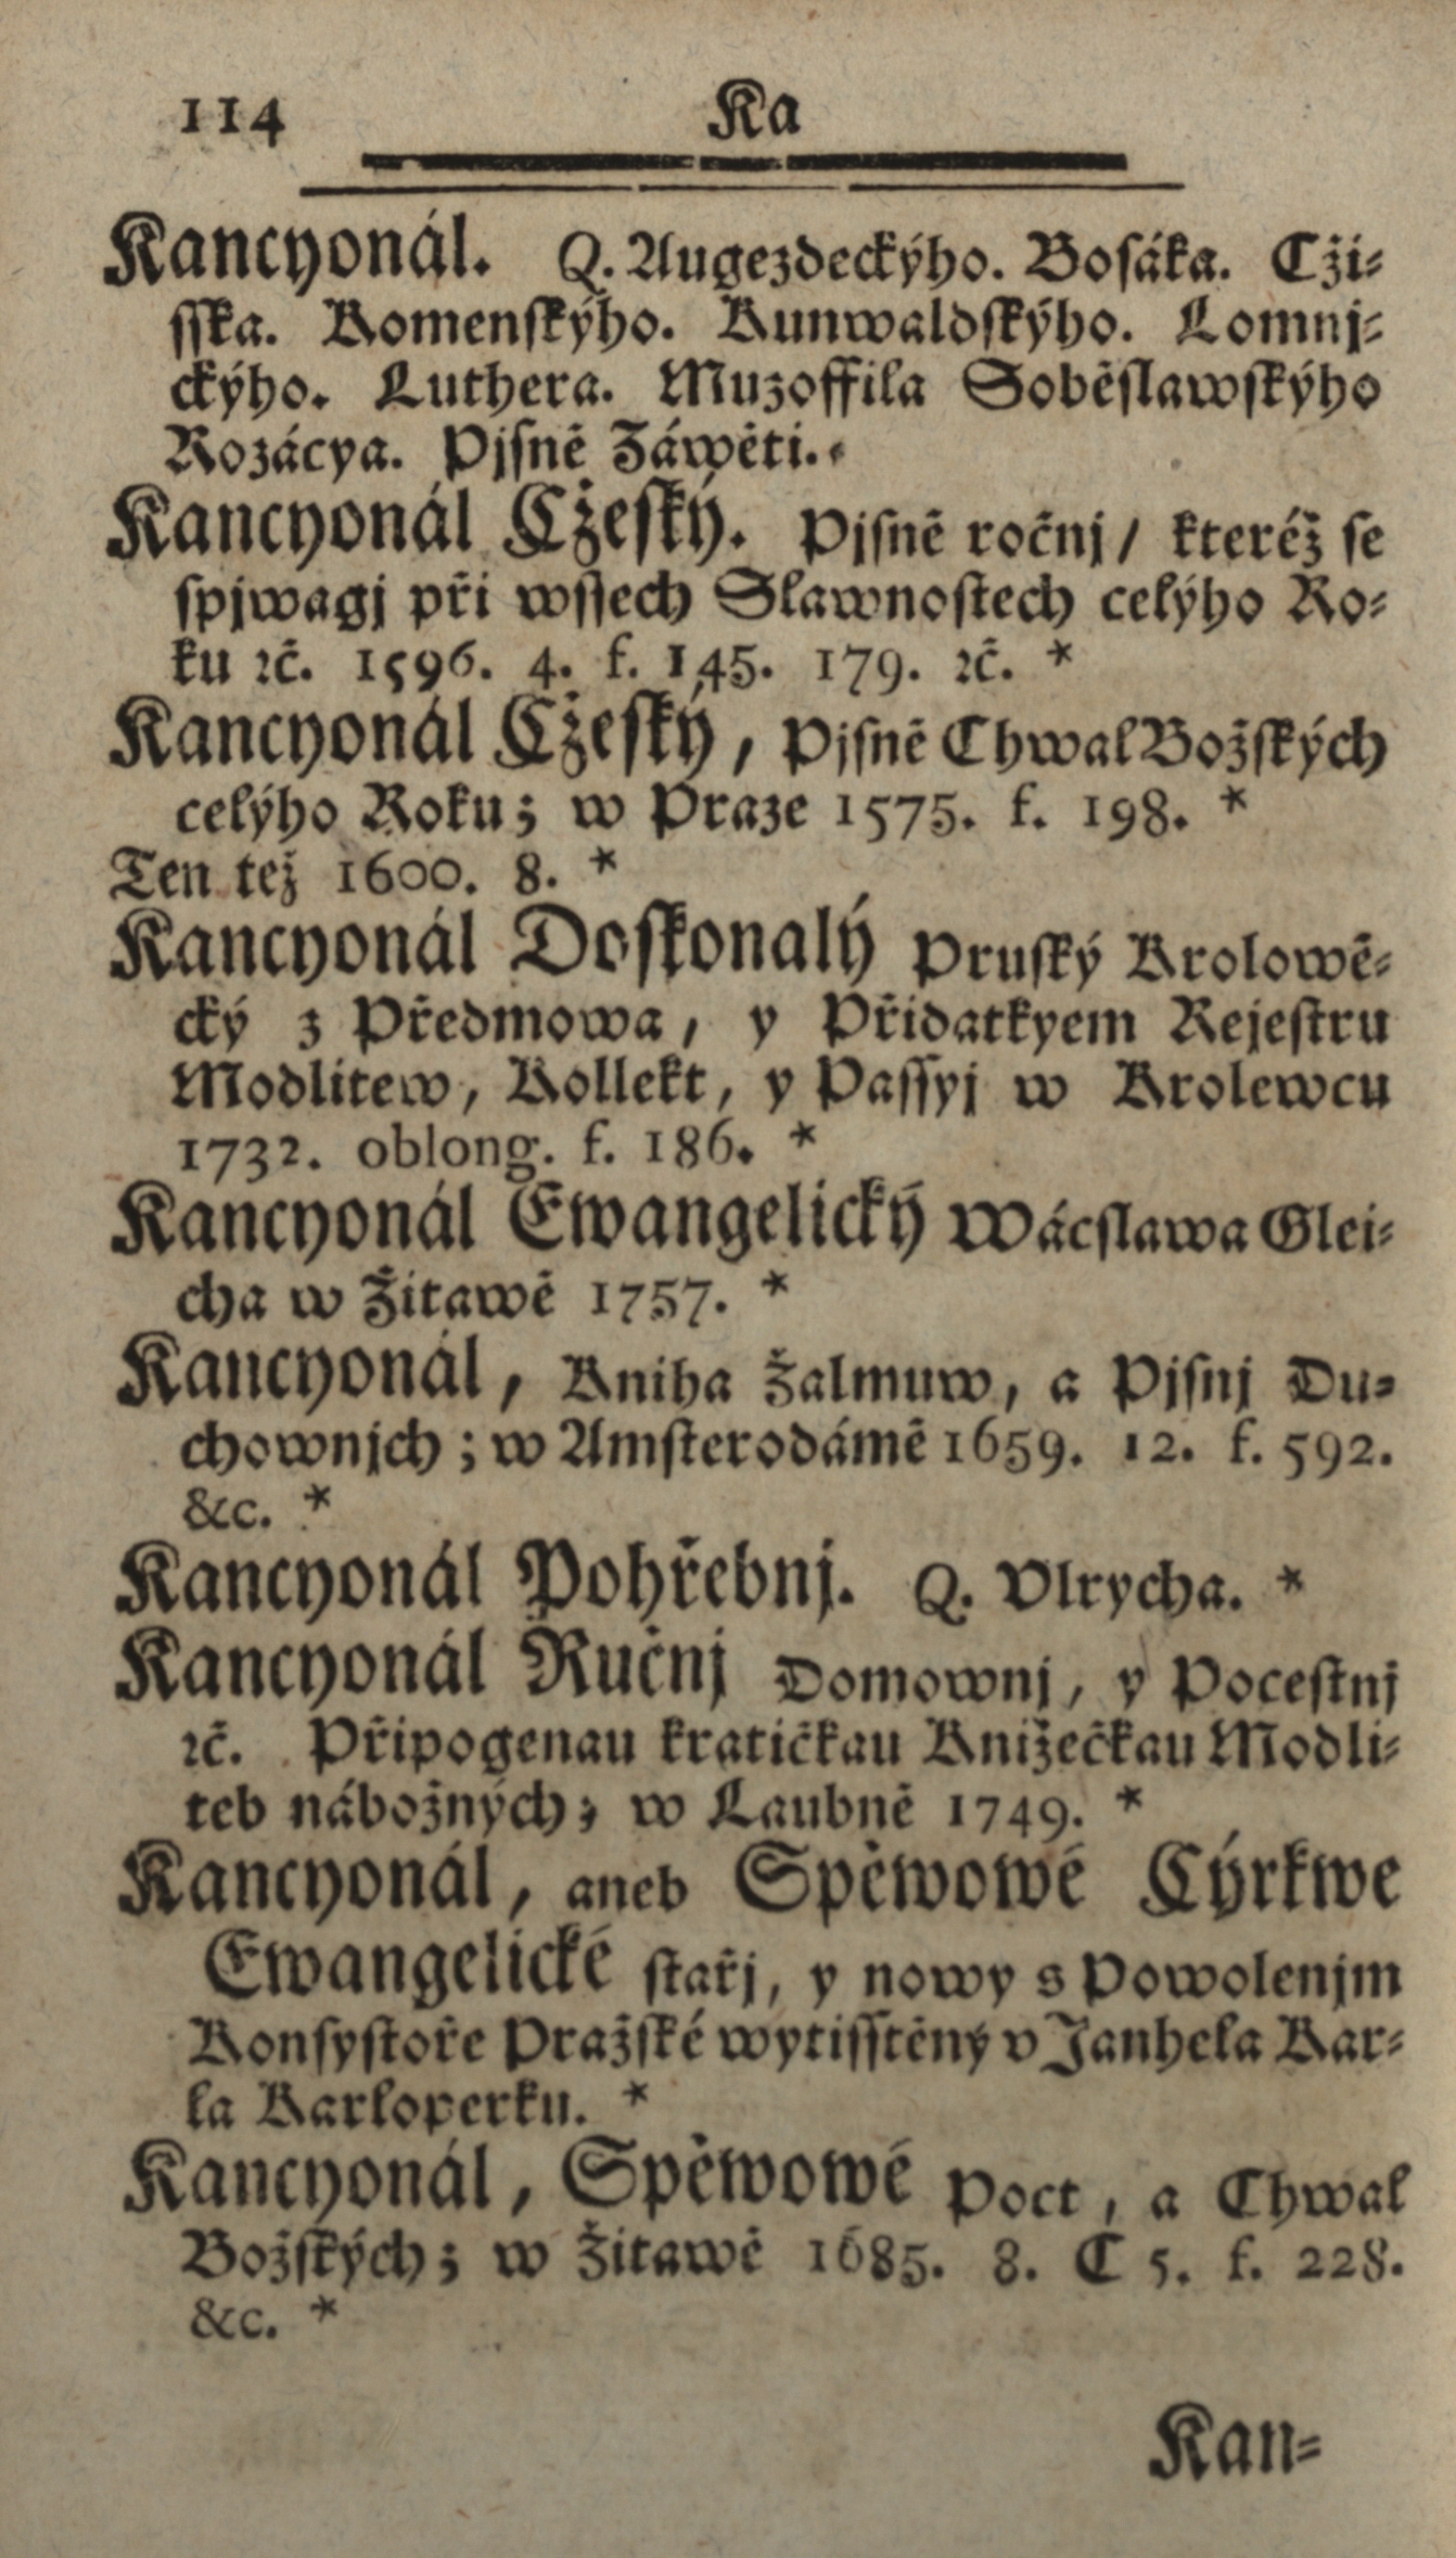 114 Ka
Kancyonál. Q. Augezdeckýho. Bosáka. Cži-
sska. Komenskýho. Kunwaldskýho. Lomnj-
ckýho. Luthera. Muzoffila Soběslawskýho
Rozácya. Pjsně Záwěti.
Kancyonál Cžeský. Pjsně ročnj / kteréž se
spjwagj při wssech Slawnostech celýho Ro-
ku ꝛč. 1596. 4. f. 145. 179. ꝛč. *
Kancyonál Cžeský, Pjsně Chwal Božských
celýho Roku; w Praze 1575. f. 198. *
Ten tež 1600. 8. *
Kancyonál Doskonalý Pruský Krolowě-
cký z Předmowa, y Přidatkyem Rejestru
Modlitew, Kollekt, y Passyj w Krolewcu
1732. oblong. f. 186. *
Kancyonál Ewangelický Wácslawa Glei-
cha w Žitawě 1757. *
Kancyonál, Kniha Žalmuw, a Pjsnj Du-
chownjch; w Amsterodámě 1659. 12. f. 592.
&c. *
Kancyonál Pohřebnj. Q. Vlrycha. *
Kancyonál Ručnj Domownj, y Pocestnj
ꝛč. Připogenau kratičkau Knižečkau Modli-
teb nábožných; w Laubně 1749. *
Kancyonál, aneb Spěwowé Cýrkwe
Ewangelické stařj, y nowy s Powolenjm
Konsystoře Pražské wytisstěný v Janhela Kar-
la Karloperku. *
Kancyonál, Spěwowé Poct, a Chwal
Božských; w Žitawě 1685. 8. C 5. f. 228.
&c. *
Kan-